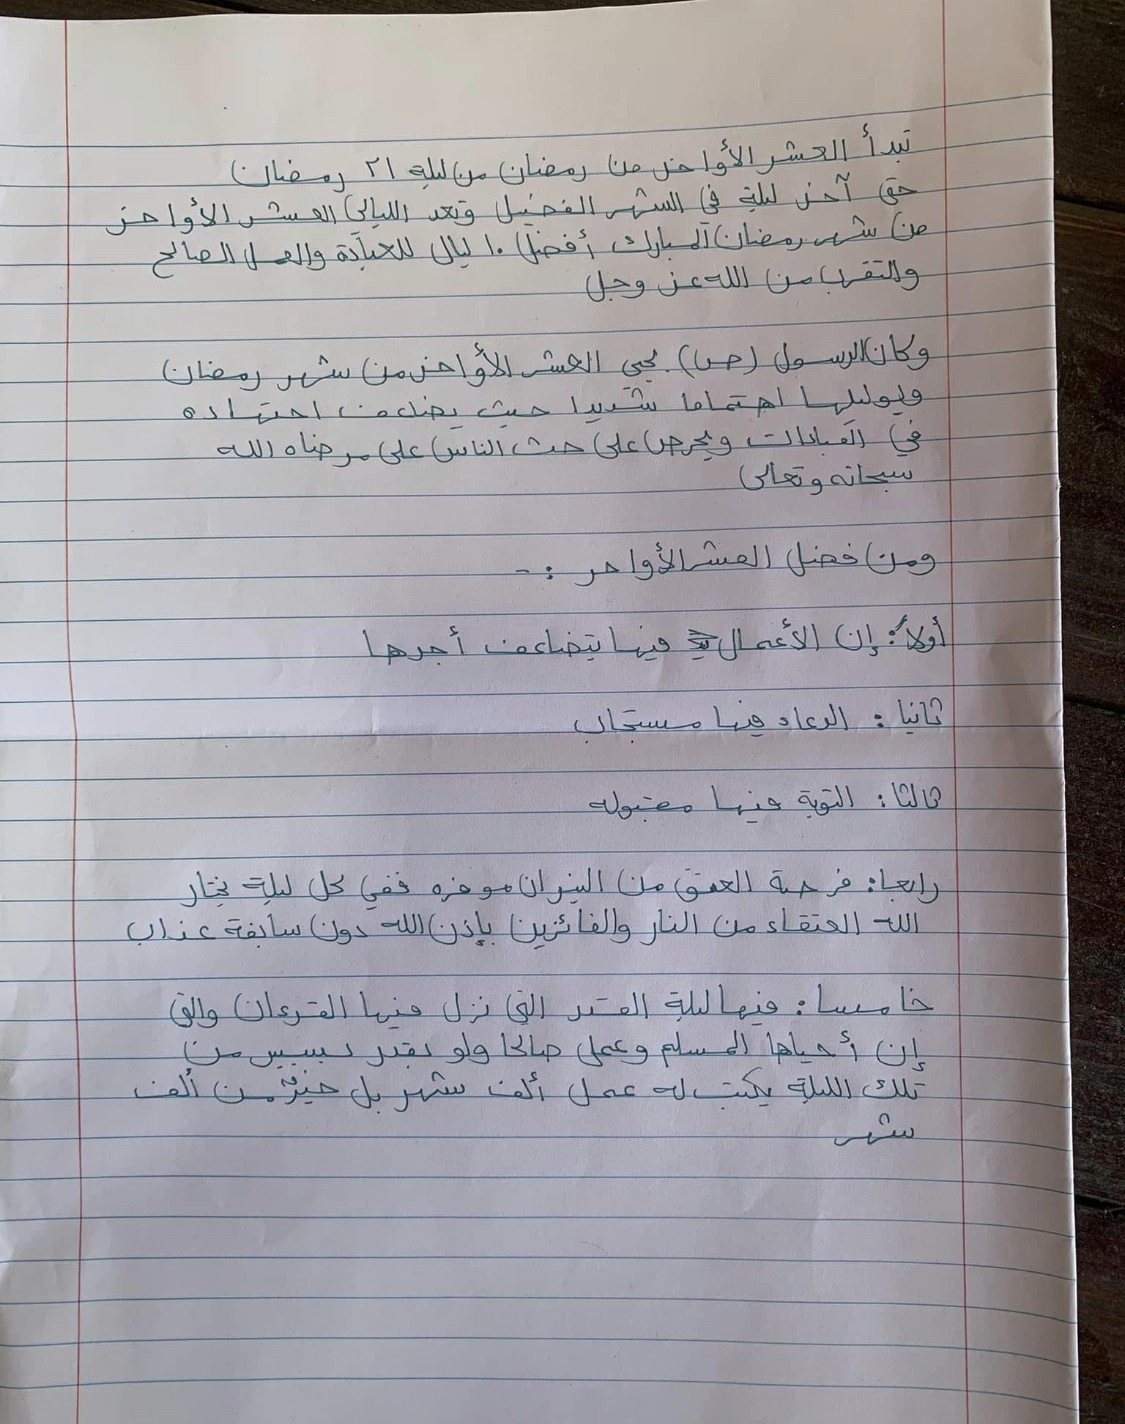 تبدأ العشر الأواخر من رمضان من ليلة ٢١ رمضان
حتى آخر ليلة في الشهر الفضيل وتعد الليالي العشر الأواخر
من شهر رمضان المبارك أفضل ١٠ ليال للعبادة والعمل الصالح
والتقرب من الله عز وجل
وكان الرسول (ص) يحيي العشر الأواخر من شهر رمضان
ويوليها اهتماما شديدا حيث يضاعف اجتهاده
في العبادات ويحرص على حث الناس على مرضاه الله
سبحانه وتعالى
ومن فضل العشر الأواخر :-
أولاً: إن الأعمال فيها يتضاعف أجرها
ثانيا: الدعاء فيها مستجاب
ثالثا: التوبة فيها مقبوله
رابعا: فرصة العتق من النيران موفره ففي كل ليلة يختار
الله العتقاء من النار والفائزين بإذن الله دون سابقة عذاب
خامسا: فيها ليلة القدر التي نزل فيها القرءان والتي
إن أحياها المسلم وعمل صالحا ولو بقدر يسير من
تلك الليلة يكتب له عمل ألف شهر بل خيرٌ من ألف
شهر